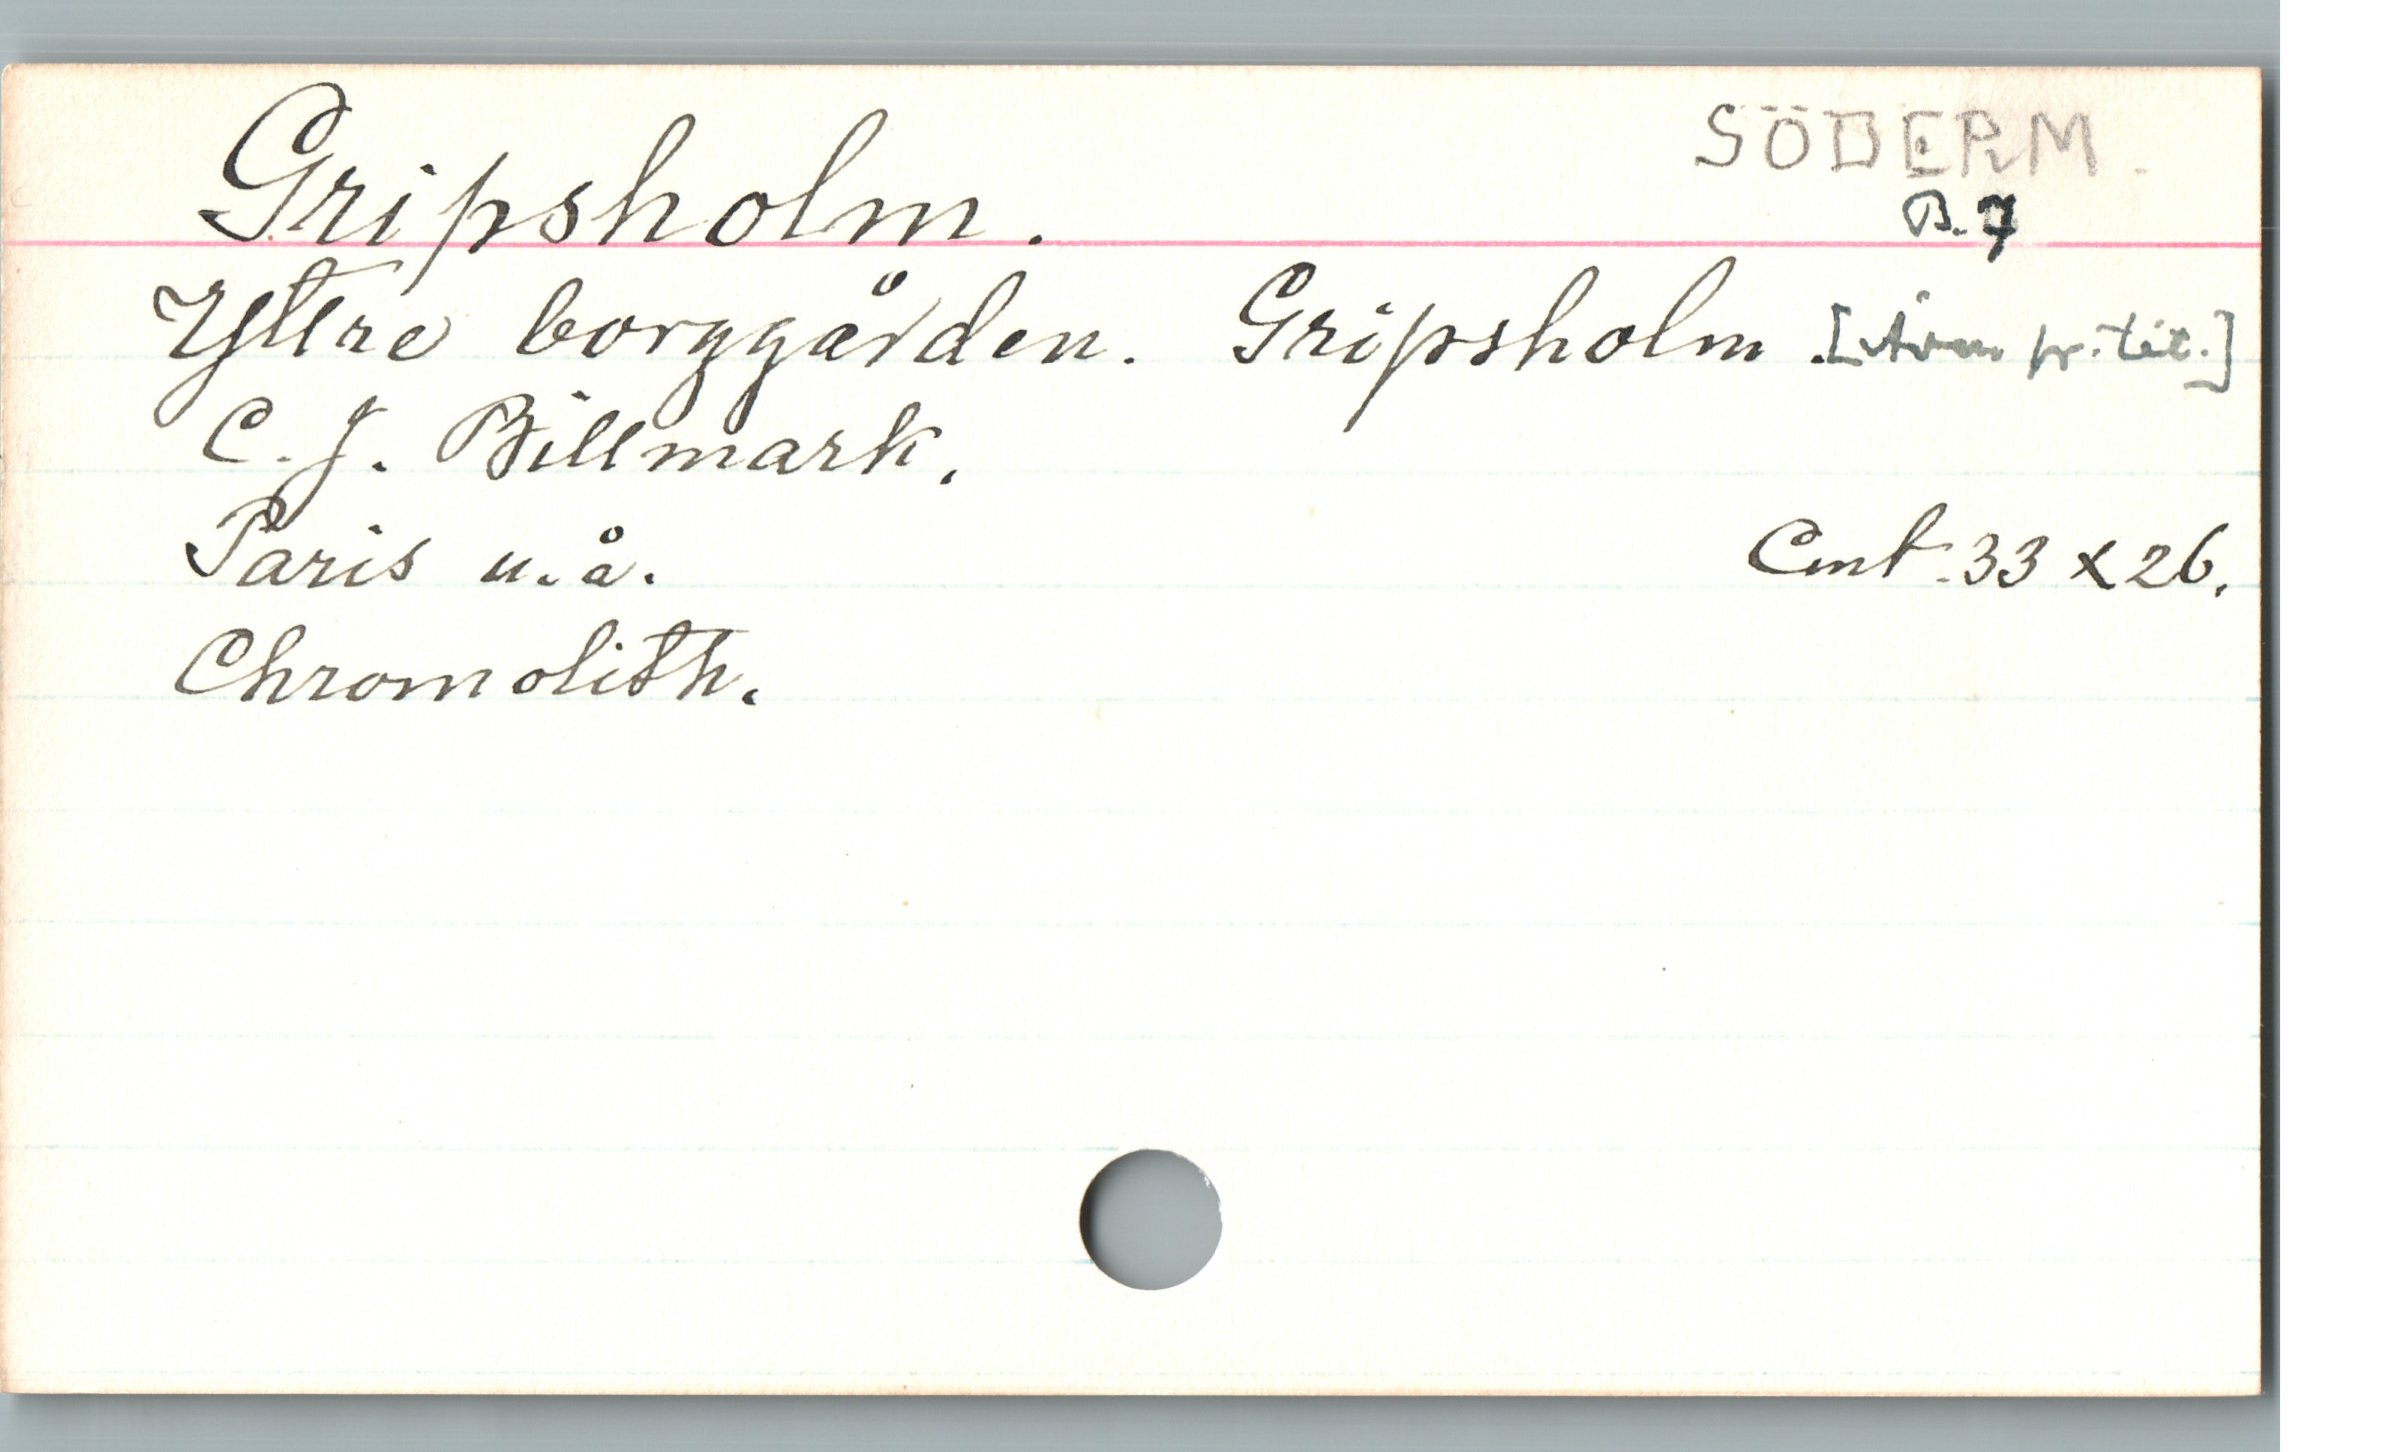 Gripsholm.
SÖDERM.
B.7
Yttre borggården. Gripsholm. [Även fr. tit.]
C. J. Billmark.
Paris u.å. Cmt. 33 x 26.
Chromolith.